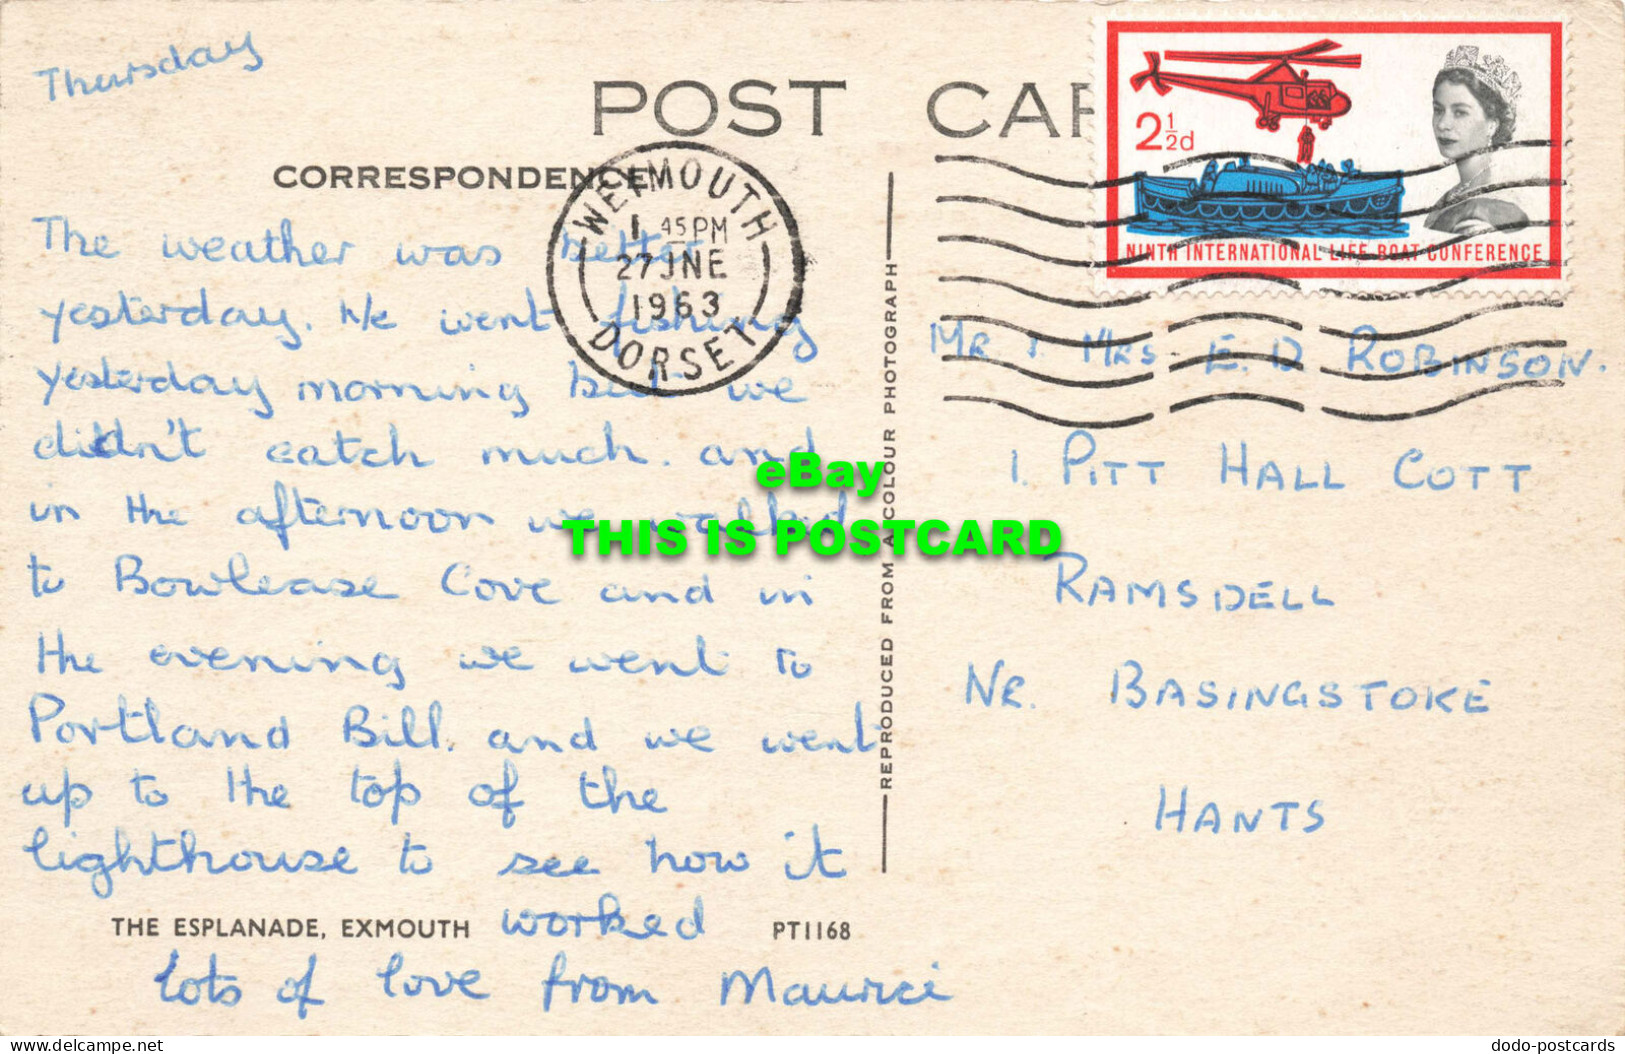 Thursday
POST CAR
CORRESPONDENCE
The weather was better
yesterday. We went fishing
yesterday morning but we
didn't catch much. and
in the afternoon we walked
to Bowlease Cove and in
the evening we went to
Portland Bill. and we went
up to the top of the
lighthouse to see how it
worked
lots of love from Maurice
THE ESPLANADE, EXMOUTH
PT1168
WEYMOUTH
1 45 PM
27 JNE
1963
DORSET
REPRODUCED FROM A COLOUR PHOTOGRAPH
2½d
NINTH INTERNATIONAL LIFE-BOAT CONFERENCE
MR & MRS E. D ROBINSON.
1. PITT HALL COTT
RAMSDELL
NR. BASINGSTOKE
HANTS
eBay
THIS IS POSTCARD
www.delcampe.net
dodo-postcards